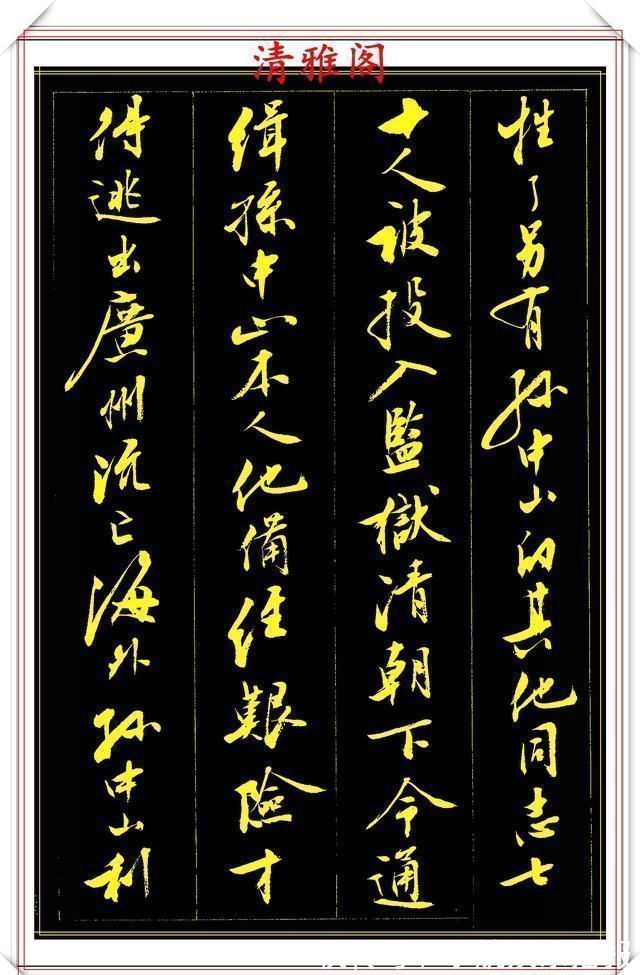 清雅阁
牲了另有孙中山的其他同志七
十人被投入監獄清朝下令通
缉孫中山本人他備经艱险才
得逃出廣州流亡海外孙中山利